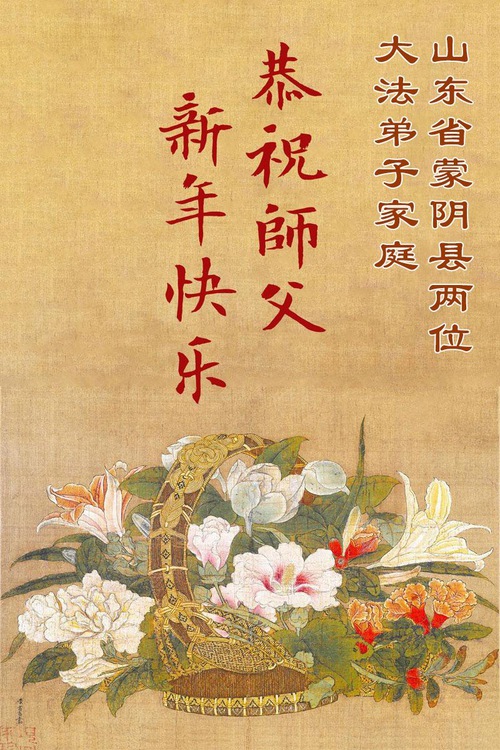 山东省蒙阴县两位
大法弟子家庭
恭祝師父
新年快乐